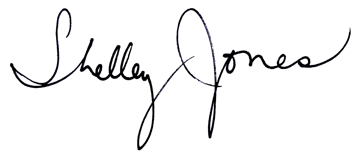 Shelley Jones